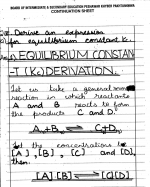 BOARD OF INTERMEDIATE & SECONDARY EDUCATION PESHAWAR KHYBER PAKHTUNKHWA
CONTINUATION SHEET
Q: Derive an expression
for equilibrium constant K.
EQUILIBRIUM CONSTAN
-T (Kc) DERIVATION.
Let us take a general
reaction in which reactants
A and B reacts to form
the products C and D.
A + B ⇌ C + D
Let the concentrations
[A], [B], [C] and [D],
then:
[A][B] ⇌ [C][D]